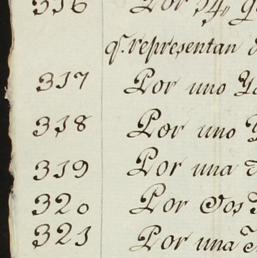 316 Por 54
q.e representan
317 Por uno
318 Por uno
319 Por una
320 Por dos
321 Por una